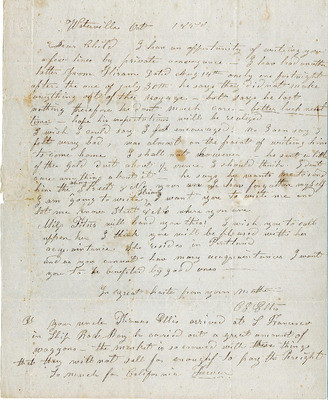 Waterville Oct 1850
Dear Child I have an opportunity of writing you
a few lines by private conveyance - I have had another
letter from Hiram Dated Aug 14th only one fortnight
after the one of July 30th he says they did not make
anything out of their voyage - but says he lost
nothing that he shant much care - better luck next
time - hope his expectations will be realized
I wish I could say I felt encouraged. no I can say I
felt very bad - was almost on the point of writing him
to come home I shall not however - he sent a little
of the gold dust
one anything about it he says he wants me to send
him the and you are we have forgotten
I am going to write, I want you to write me and
let me know Street &c where you are
Miss will hand you this I wish you to call
upon her I think you will be pleased with her
acquaintance She resides in Portland
and as you cannot have many acquaintances I want
you to be benefited by good ones -
In great haste from your Mother
Ellis
your uncle Thomas Ellis arrived at S Francisco
in Ship he carried out a great amount of
waggons - the market is so crowded with these things
they will not sell for enough to pay the freight
So much for California